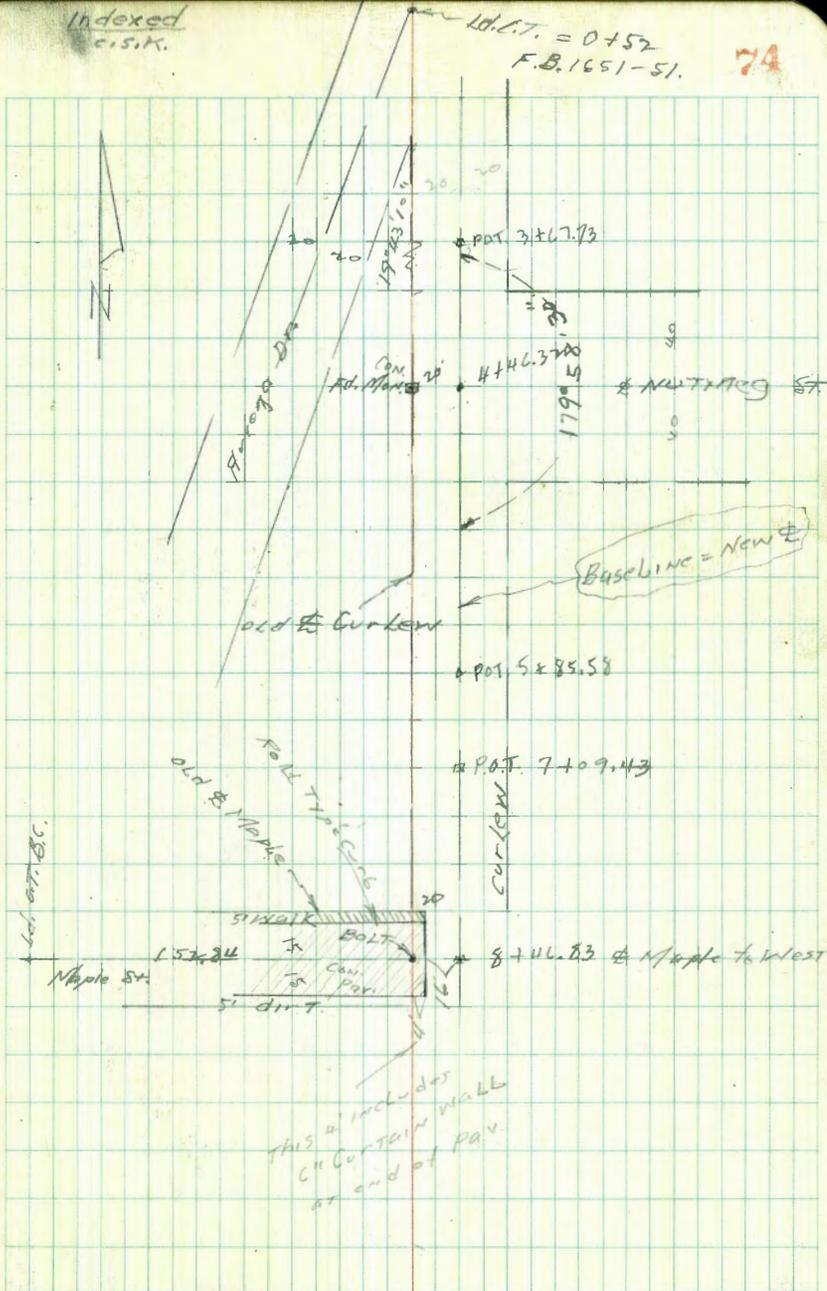 Indexed
C.S.K.
Ld.C.T. = 0+52
F.B. 1651-51.
74
N
20 20
19°43'10"
20
20
P.O.T. 3+67.73
179°58'30"
40
Con.
Fd. Mon.
20'
4+46.37
℄ Nutmeg St.
40
Dr.
Baseline = New ℄
Old ℄ Curlew
P.O.T. 5+85.58
P.O.T. 7+09.43
Curlew
Old ℄ Maple
Roll Type Curb
Ld. & T. B.C.
20
5' Walk
Bolt
15
152.84
8+46.83 ℄ Maple to West
Maple St.
15
Con.
Pav.
16
5' dirt.
4'
This 4' includes
6" Curtain Wall
at end of Pav.